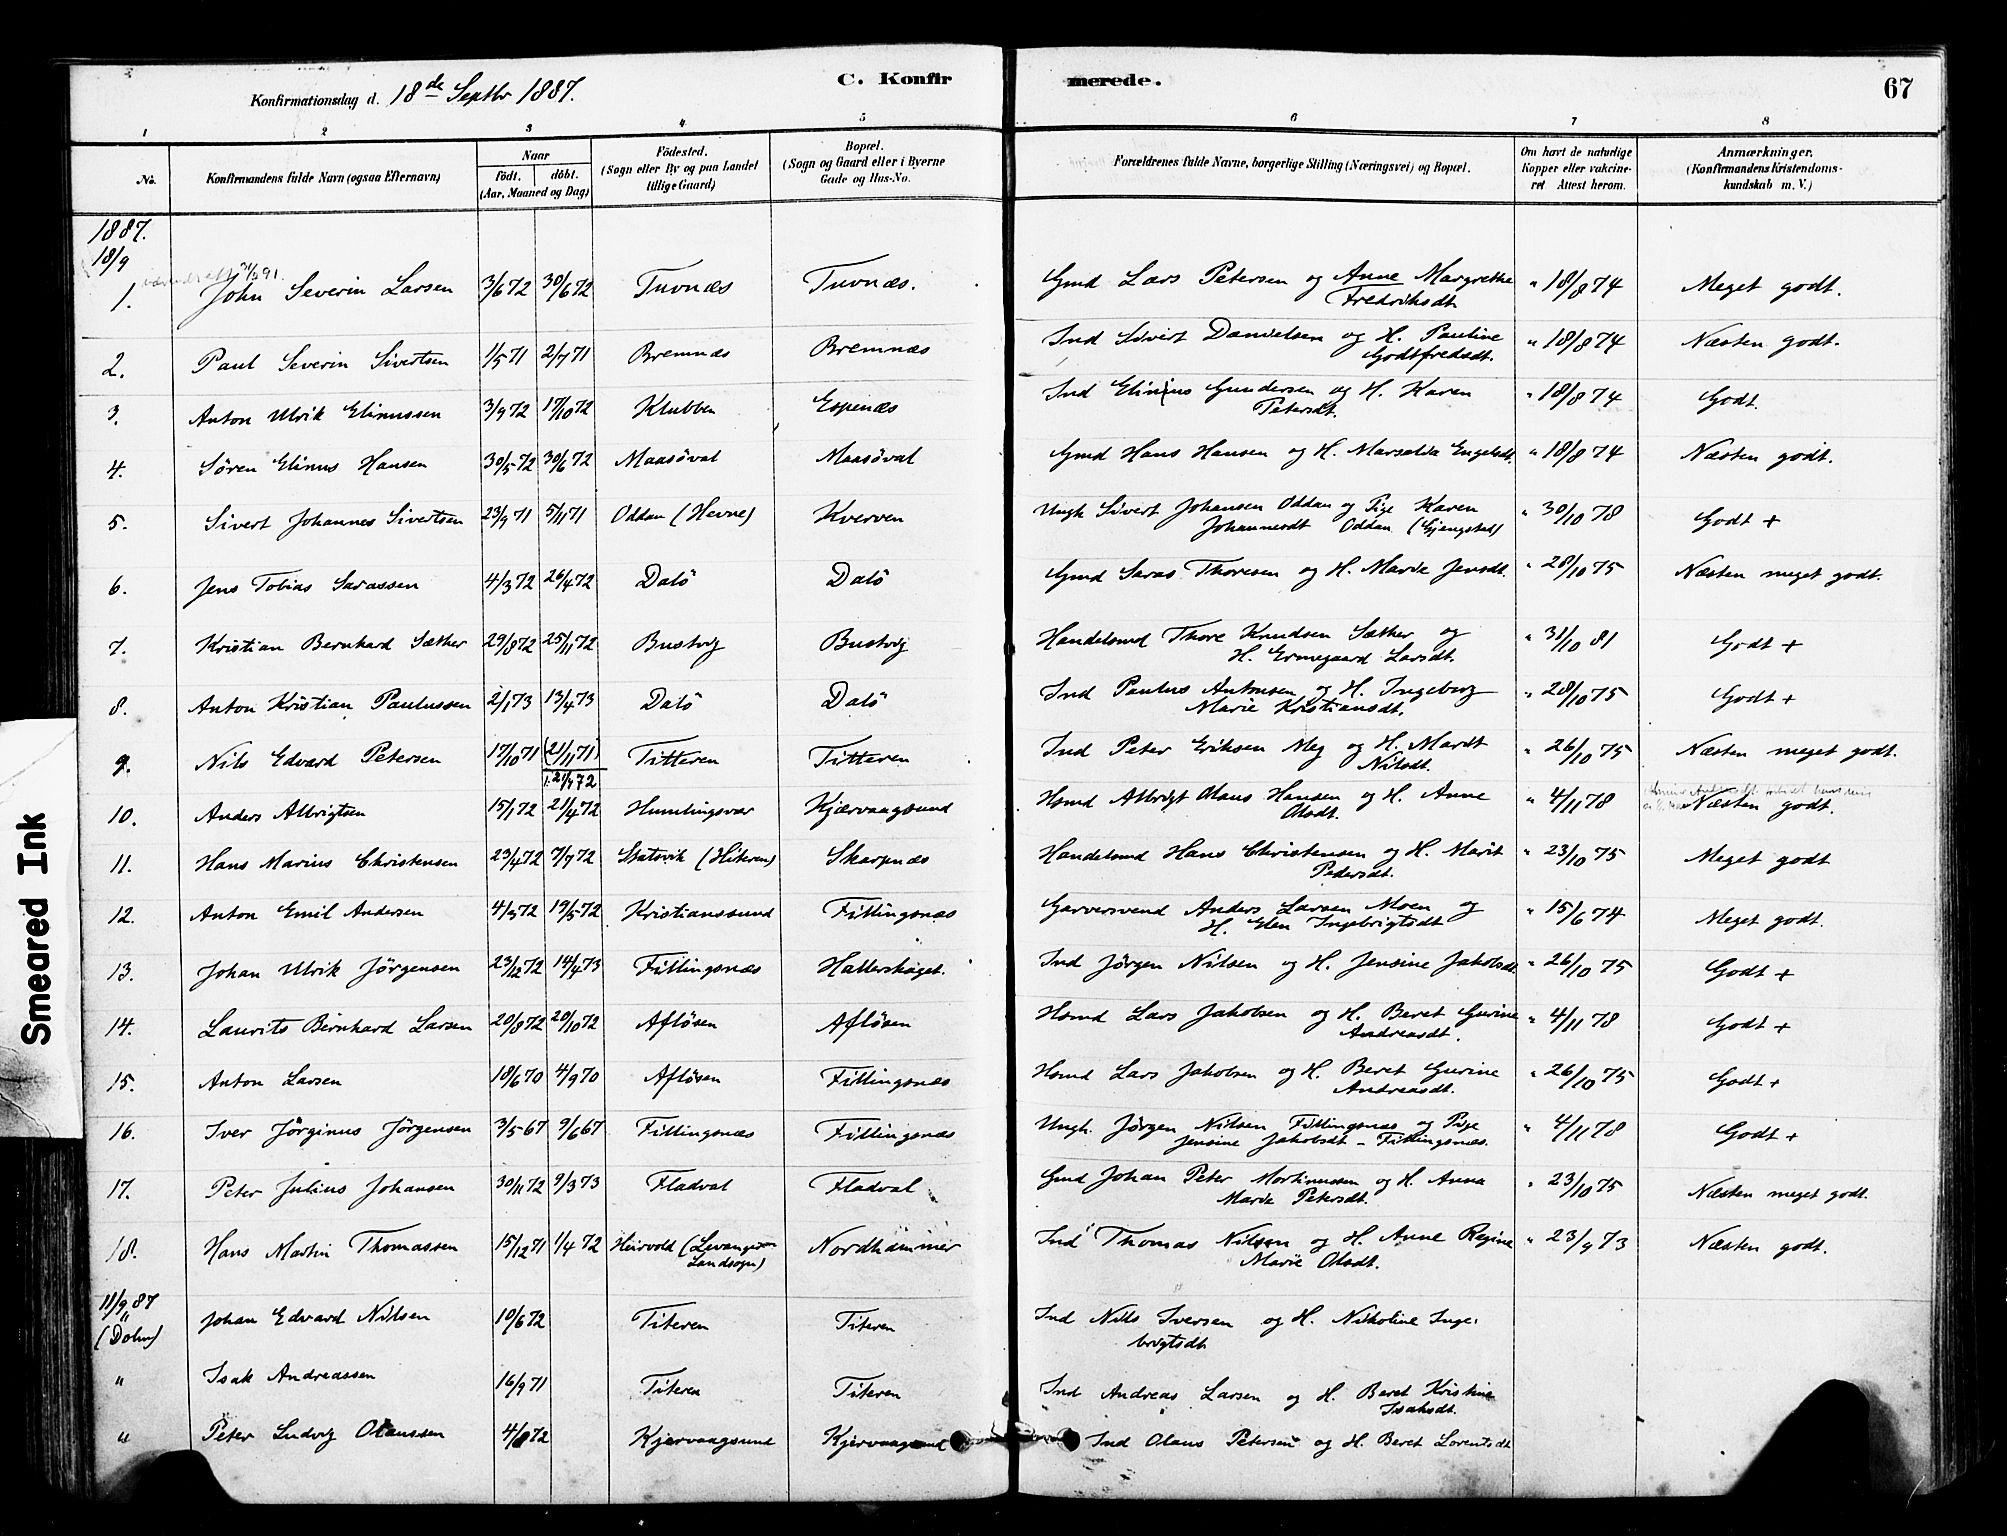 C. Konfirmerede.
67
Konfirmationsdag d. 18de Septbr 1887.
1 2 3 4 5 6 7 8
No.
Konfirmandens fulde Navn (ogsaa Efternavn)
Naar
født. døbt.
(Aar, Maaned og Dag)
Födested.
(Sogn eller By og paa Landet
tillige Gaard)
Bopæl.
(Sogn og Gaard eller i Byerne
Gade og Hus-No.
Forældrenes fulde Navne, borgerlige Stilling (Næringsvei) og Bopæl.
Om havt de naturlige
Kopper eller vakcine-
ret Attest herom.
Anmærkninger.
(Konfirmandens Kristendoms-
kundskab m. V.)
1887.
18/9
1. John Severin Larsen 3/6 72 30/6 72 Tuvnæs Tuvnæs. Gmd Lars Petersen og Anne Margrethe " 18/8 74 Meget godt.
Fredriksdt.
2. Paul Severin Sivertsen 1/5 71 2/7 71 Bremnæs Bremnæs Ind Sivert Danielsen og H. Pauline " 18/8 74 Næsten godt.
Godtfredsdt.
3. Anton Ulrik Elinussen 3/9 72 17/10 72 Klubben Espenæs Ind Elinius Gundersen og H. Karen " 18/8 74 Godt.
Petersdt.
4. Søren Elinus Hansen 30/5 72 30/6 72 Maasöval Maasöval Gmd Hans Hansen og H. Marselda Engelsdt. " 18/8 74 Næsten godt.
5. Sivert Johannes Sivertsen 23/9 71 5/11 71 Oddan (Hevne) Kverven Ungk Sivert Johansen Oddan og Pige Karen " 30/10 78 Godt +
Johannesdt Oddan (Gjengstad)
6. Jens Tobias Sarassen 4/3 72 26/4 72 Dalö Dalö Gmd Saras Thoresen og H. Marie Jensdt. " 28/10 75 Næsten meget godt.
7. Kristian Bernhard Sæther 29/8 72 25/11 72 Bustvig Bustvig Handelsmd Thore Knudsen Sæther og " 31/10 81 Godt +
H. Ermegaard Larsdt.
8. Anton Kristian Paulussen 2/1 73 13/4 73 Dalö Dalö Ind Paulus Antonsen og H. Ingeborg " 28/10 75 Godt +
Marie Kristiansdt.
9. Nils Edvard Petersen 17/10 71 (21/11 71) Titteren Titteren Ind Peter Eriksen Meg og H. Marit " 26/10 75 Næsten meget godt.
i. 21/4 72 Nilsdt.
10. Anders Albrigtsen 15/1 72 21/4 72 Humlingsvær Kjærvaagsund Hsmd Albrigt Olaus Hansen og H. Anne " 4/11 78 Næsten godt.
Olsdt.
11. Hans Marius Christensen 23/4 72 7/7 72 Statsvik (Hiteren) Skarpnæs Handelsmd Hans Christensen og H. Marit " 23/10 75 Meget godt
Pedersdt.
12. Anton Emil Andersen 4/3 72 19/5 72 Kristianssund Fillingsnæs Garversvend Anders Larsen Moen og " 15/6 74 Meget godt.
H. Elen Ingebrigtsdt
13. Johan Ulrik Jörgensen 23/12 72 14/4 73 Fillingsnæs Hallershaget. Ind Jörgen Nilsen og H. Jensine Jakobsdt. " 26/10 75 Godt +
14. Laurits Bernhard Larsen 20/8 72 20/10 72 Aflösen Aflösen Hsmd Lars Jakobsen og H. Beret Gurine " 4/11 78 Godt +
Andreasdt.
15. Anton Larsen 18/6 70 4/9 70 Aflösen Fillingsnæs Hsmd Lars Jakobsen og H. Beret Gurine " 26/10 75 Godt +
Andreasdt.
16. Iver Jörginus Jörgensen 3/5 67 9/6 67 Fillingsnæs Fillingsnæs Ungk. Jörgen Nilsen Fillingsnæs og Pige " 4/11 78 Godt +
Jensine Jakobsdt - Fillingsnæs.
17. Peter Julius Johansen 30/11 72 9/3 73 Fladval Fladval Gmd Johan Peter Martinusen og H. Anna " 23/10 75 Næsten meget godt.
Marie Petersdt.
18. Hans Martin Thomassen 15/12 71 1/4 72 Heirvold (Levanger Nordhammer Ind Thomas Nilsen og H. Anne Regine " 23/9 73 Næsten godt.
Landsogn) Marie Olsdt.
11/9 87 Johan Edvard Nilsen 10/6 72 Titeren Titeren Ind Nils Iversen og H. Nikoline Inge-
(Dolm) brigtsdt
" Isak Andreassen 16/9 71 Titeren Titeren Ind Andreas Larsen og H. Beret Kristine
Isaksdt.
" Peter Ludvig Olaussen 4/8 72 Kjervaagsund Kjervaagsund Ind Olaus Petersen og H. Beret Lorentsdt
Smeared Ink